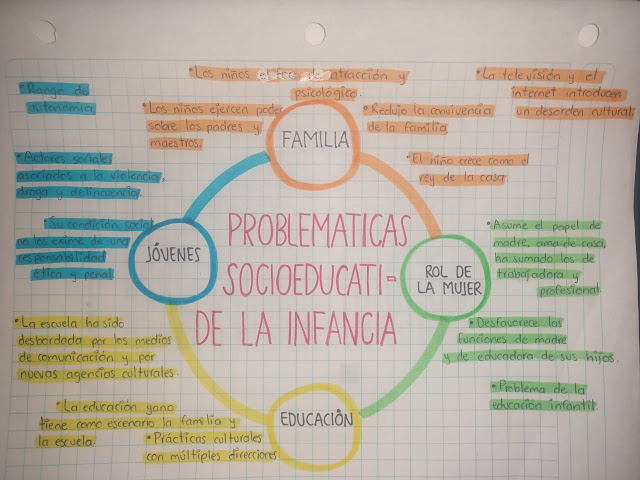 • Los niños el foco de atracción y
psicológico.
• La televisión y el
internet introducen
un desorden cultural.
• Los niños ejercen poder
sobre los padres y
maestros.
• Redujo la convivencia
de la familia
• El niño crece como el
rey de la casa.
FAMILIA
• Rango de
autonomía
• Actores sociales
asociados a la violencia,
droga y delincuencia.
• Su condición social
no los exime de una
responsabilidad
ética y penal.
JÓVENES
PROBLEMATICAS
SOCIOEDUCATI=
DE LA INFANCIA
ROL DE
LA MUJER
• Asume el papel de
madre, ama de casa,
ha sumado los de
trabajadora y
profesional.
• Desfavorece las
funciones de madre
y de educadora de sus hijos.
• Problema de la
educación infantil.
• La escuela ha sido
desbordada por los medios
de comunicación y por
nuevas agencias culturales.
• La educación ya no
tiene como escenario la familia y
la escuela.
• Prácticas culturales
con múltiples direcciones
EDUCACIÓN